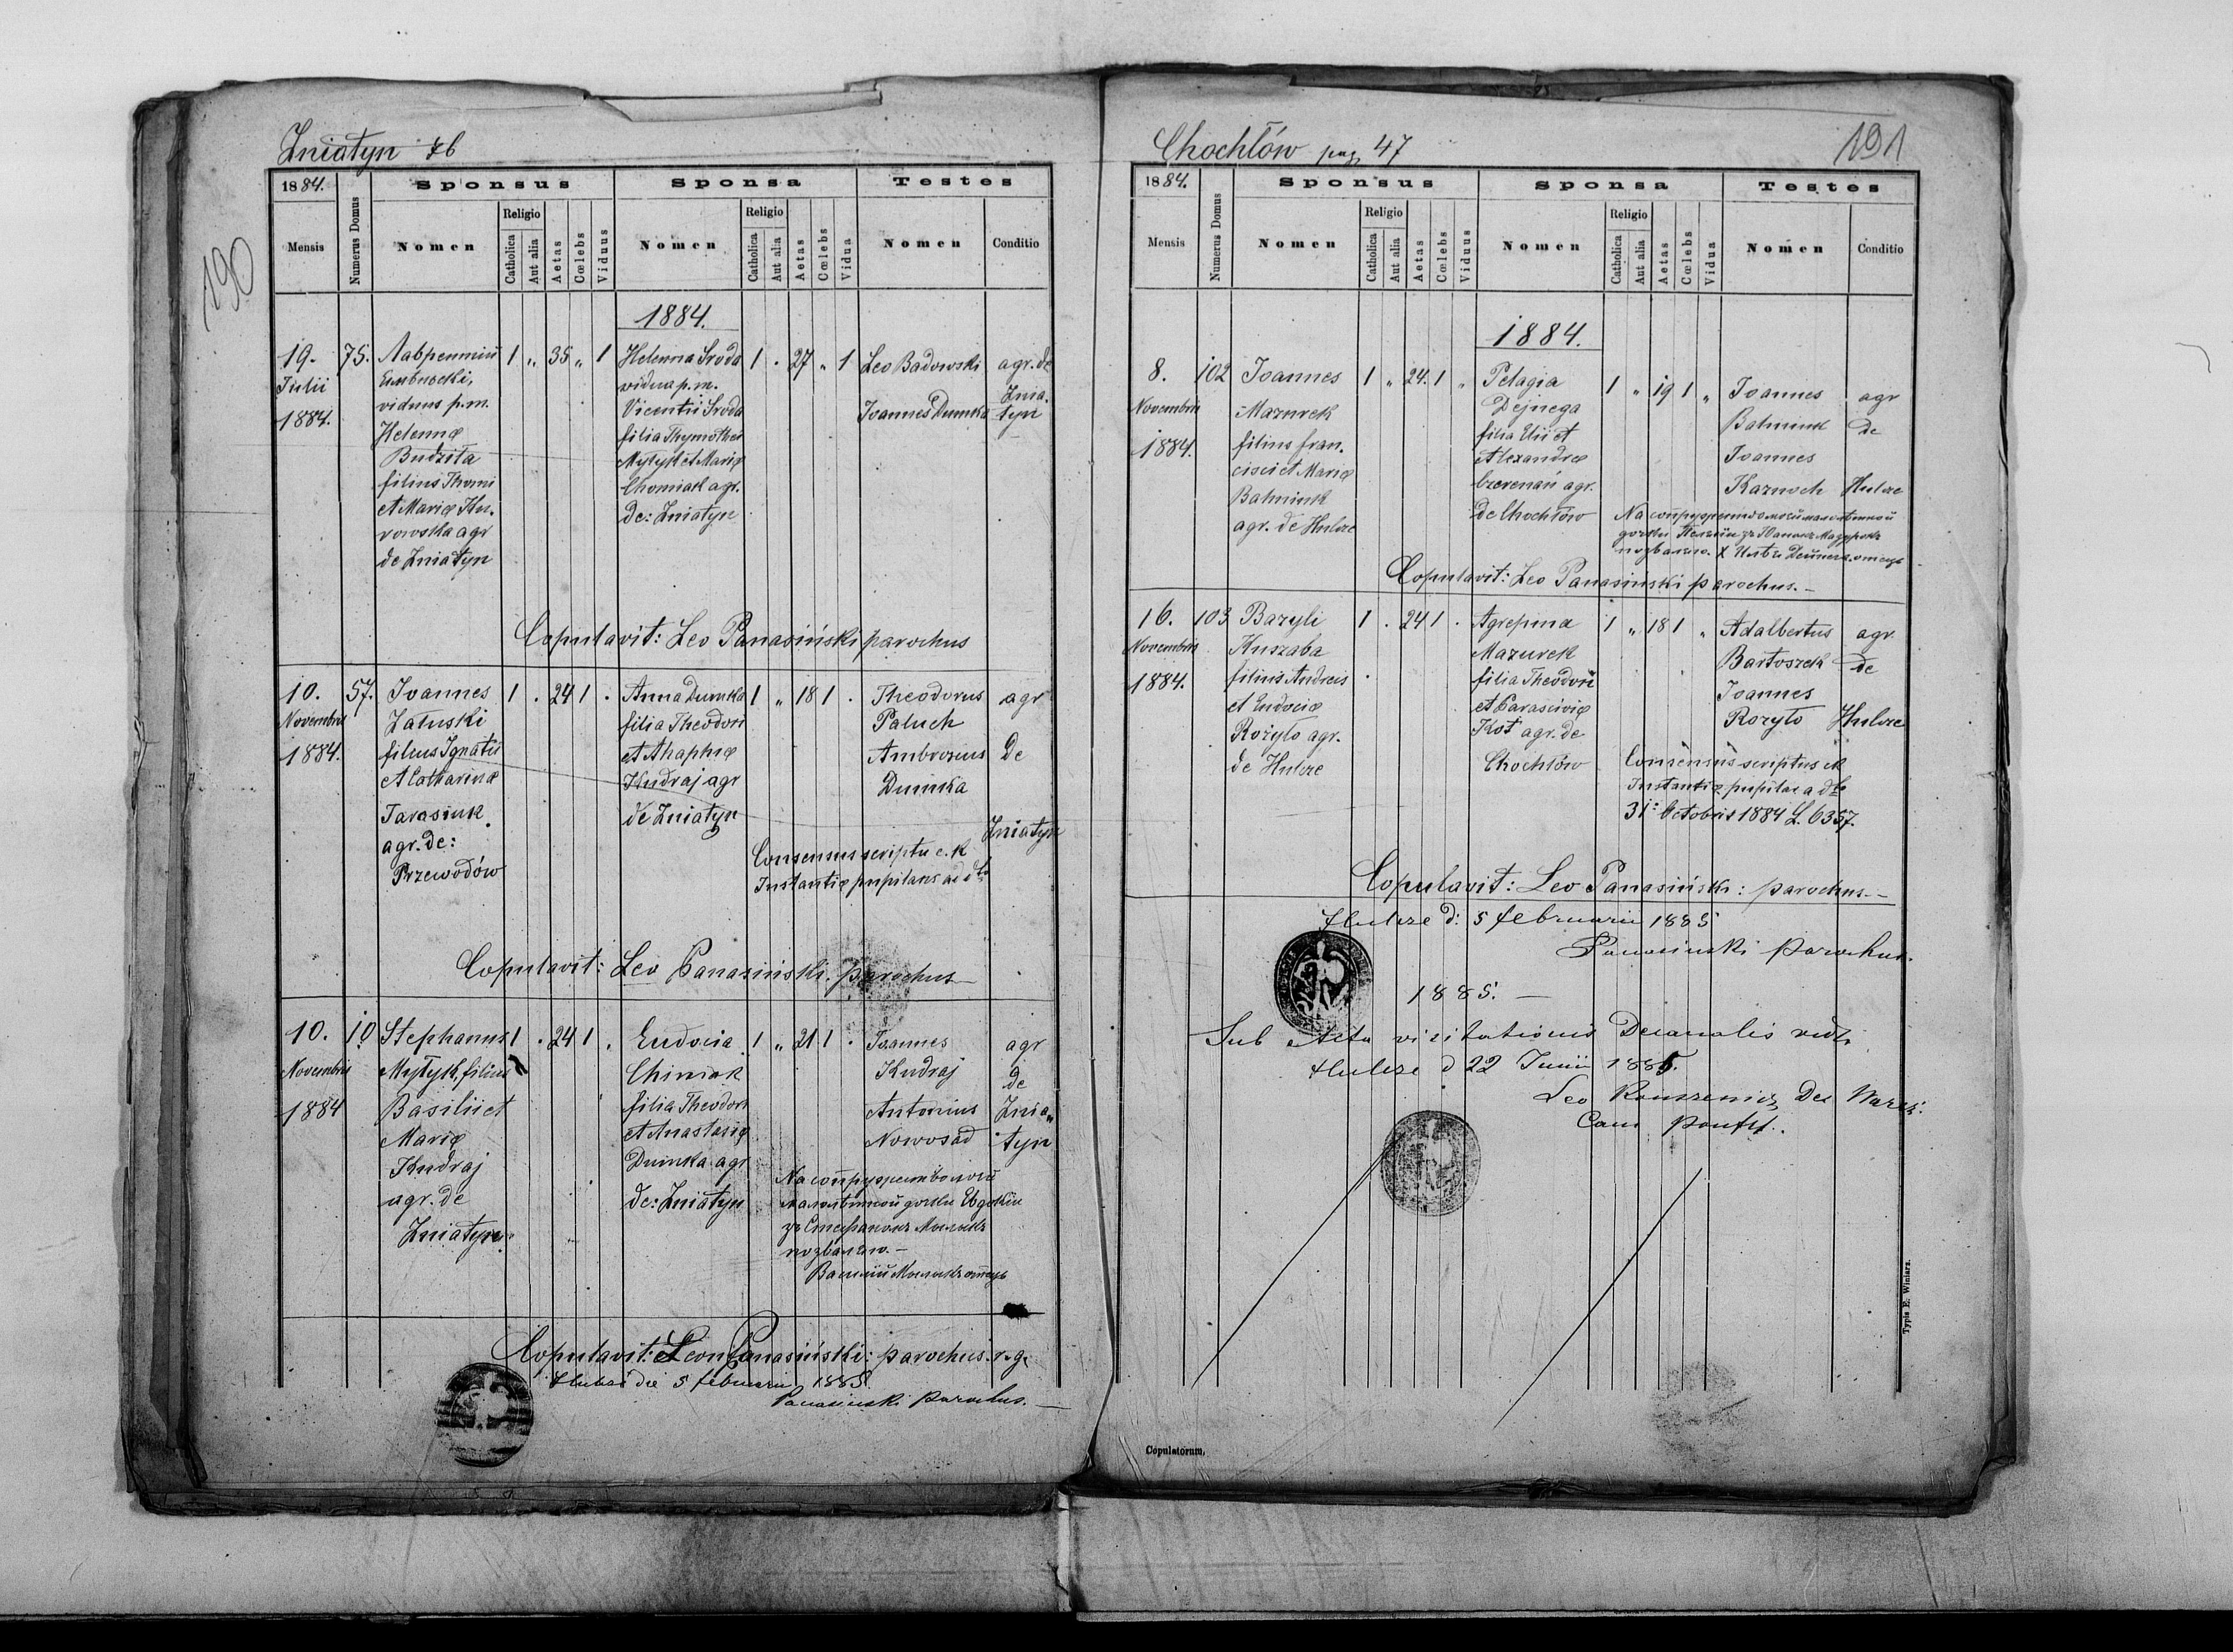 Zniatyn 46
190
1884.
Sponsus
Sponsa
Testes
Mensis
Numerus Domus
Nomen
Religio
Catholica
Aut alia
Aetas
Cœlebs
Viduus
Nomen
Religio
Catholica
Aut alia
Aetas
Cœlebs
Vidua
Nomen
Conditio
1884.
19. Julii 1884.
75.
Лаврентий
viduus p.m.
Helennæ
Budzita
filius Thomi
et Mariæ
agr
de Zniatyn
1 „ 35 „ 1
Helenna Sroda
vidua p.m.
Vicentii Sroda
filia Thymothei
Mytyk et Mariæ
Chomiak agr.
de: Zniatyn
1 . 27 „ 1
Leo Badowski
Joannes Dumka
agr. de
Znia-
tyn
Copulavit: Leo Panasiński parochus
10.
Novembris
1884.
57.
Joannes
Załuski
filius Ignatii
et Catharinæ
Tarasiuk
agr. de:
Przewodów
1 . 24 1 .
Anna Dumka
filia Theodori
et Ahaphiæ
Kudraj agr
de Zniatyn
1 „ 18 1 .
Theodorus
Paluch
Ambrosius
Dumka
agr
de
Zniatyn
Consensus scriptu c. k
Instantiæ pupilaris ad dto
Copulavit: Leo Panasiński. parochus
10.
Novembris
1884
10
Stephanus
Mytyk, filius
Basilii et
Mariæ
Kudraj
agr. de
Zniatyn
1 . 24 1 .
Eudocia
Chimiak
filia Theodori
et Anastasiæ
Dumka agr
de: Zniatyn
1 „ 21 1 .
Joannes
Kudraj
Antonius
Nowosad
agr
de
Znia„
tyn
малолѣтной дочки Евдокіи
зъ Стефаномъ
позваляю.—
Copulavit: Leon Panasiński: parochus. r. g.
die 5 februarii 1885
Panasiński parochus.—
Chochłów pag. 47
191
1884.
Sponsus
Sponsa
Testes
Mensis
Numerus Domus
Nomen
Religio
Catholica
Aut alia
Aetas
Cœlebs
Viduus
Nomen
Religio
Catholica
Aut alia
Aetas
Cœlebs
Vidua
Nomen
Conditio
1884.
8.
Novembris
1884.
102
Joannes
Mazurek
filius fran-
cisci et Mariæ
Bahniuk
agr. de Hulcze
1 „ 24. 1 „
Pelagia
Dejnega
filia Elii et
Alexandræ
agr.
de Chochłów
1 „ 19 1 „
Joannes
Bahniuk
Joannes
Karnoch
agr
de
Hulcze
позваляю. X Илья Дейнега отець
Copulavit: Leo Panasiński parochus.—
16.
Novembris
1884.
103
Bazyli
Kuszaba
filius Andreis
et Eudociæ
Rozyło agr.
de Hulcze
1 . 24 1 .
Agrepina
Mazurek
filia Theodori
et Parasciviæ
Kot agr. de
Chochłów
1 „ 18 1 „
Adalbertus
Bartoszek
Joannes
Rozyło
agr
de
Hulcze
Consensus scriptus ck
Instantiæ pupilar a dto
31: Octobris 1884 L. 6357.
Copulavit: Leo Panasiński: parochus.—
Hulcze d: 5 februarii 1885
Panasiński parochus.
1885.—
Sub Actu visitationis Decanalis vidi
Hulcze d 22 Junii 1885.
Leo
Typis E. Winiarz.
Copulatorum,